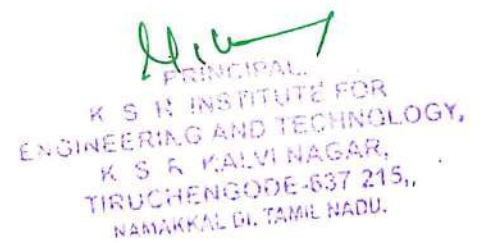 PRINCIPAL.
K S R INSTITUTE FOR
ENGINEERING AND TECHNOLOGY,
K S R KALVI NAGAR,
TIRUCHENGODE-637 215,,
NAMAKKAL DI. TAMIL NADU.